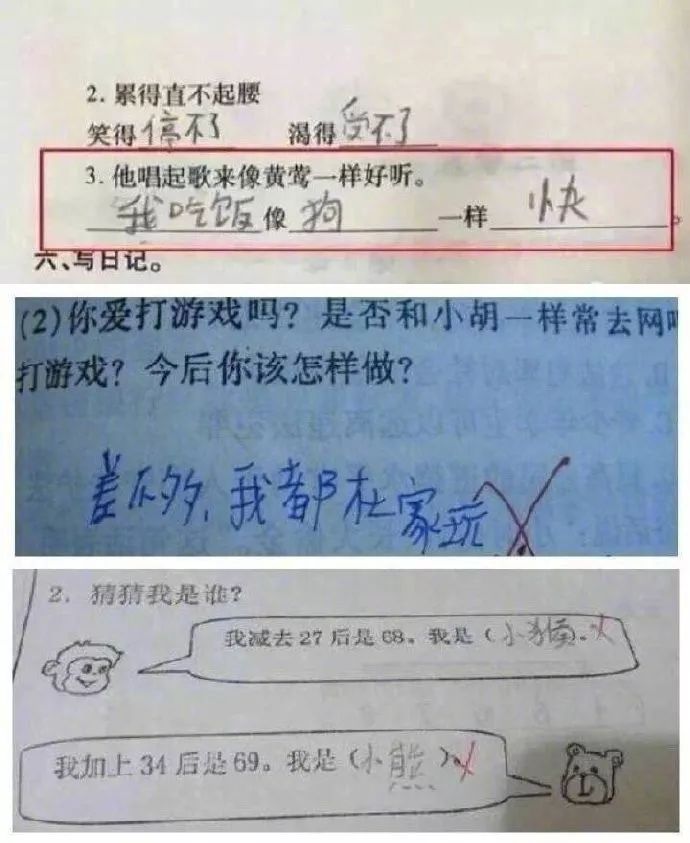 2. 累得直不起腰
笑得停不了 渴得受不了
3. 他唱起歌来像黄莺一样好听。
我吃饭像狗一样快。
六、写日记。
(2)你爱打游戏吗？是否和小胡一样常去网吧
打游戏？今后你该怎样做？
差不多，我都在家玩
2. 猜猜我是谁？
我减去27后是68。我是（小猴）。
我加上34后是69。我是（小熊）。